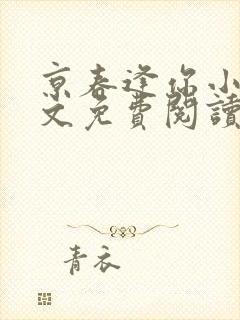 京春逢你小
文免費閱讀
青衣